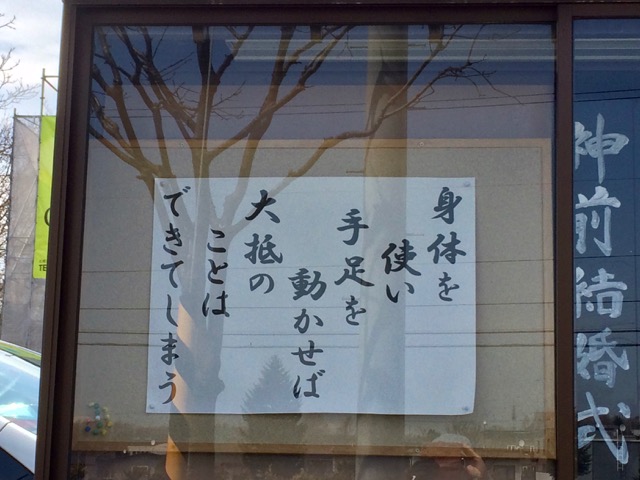 身体を
使い
手足を
動かせば
大抵の
ことは
できてしまう
神前結婚式